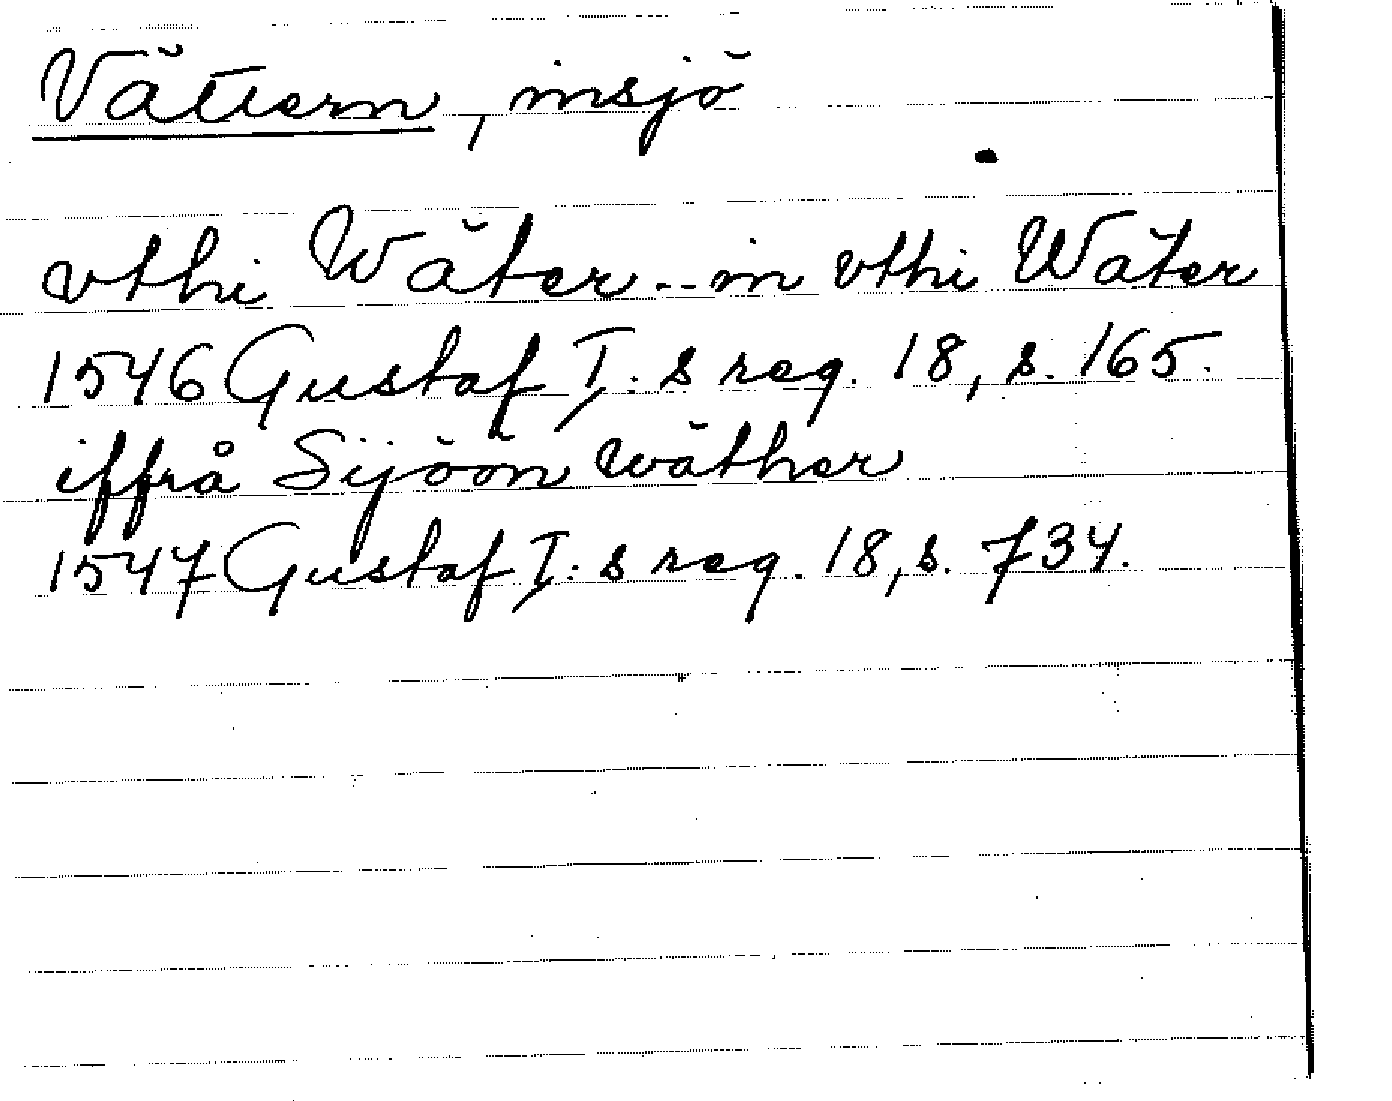 Vättern, insjö
vthi Wäter -- in vthi Wäter
1546 Gustaf I:s reg. 18, s. 165.
iffrå Sijöön wäther
1547 Gustaf I:s reg. 18, s. 734.